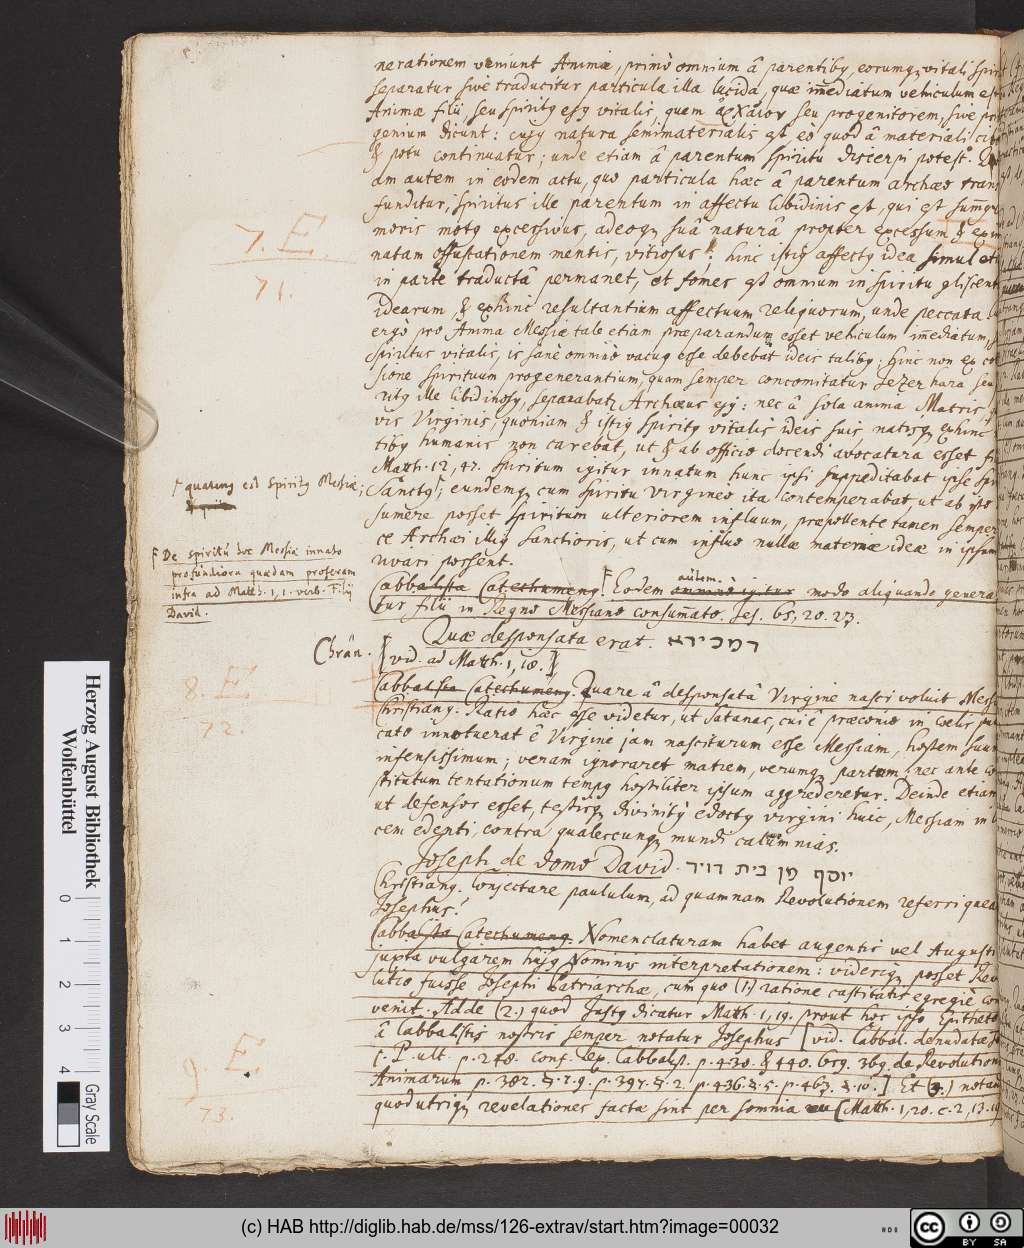 nerationem veniunt Animæ, primò omnium â parentibꝯ, eorumqꝫ vitali Spiri
separatur sive traducitur particula illa lucida, quæ im̄ediatum vehiculum est
Animæ filii, seu Spiritꝯ ejꝯ vitalis, quem ἀρχαῖον seu progenitorem, sive pri
genium dicunt: cujꝯ natura semimaterialis est eo quod â materiali cibo
& potu continuatur; unde etiam â parentum Spiritu discerpi potest.
am autem in eodem actu, quo particula hæc â parentum archæo trans
funditur, Spiritus ille parentum in affectu libidinis est, qui est sum̄
moris motꝯ excessivus, adeoqꝫ suâ naturâ propter excessum &
natam offuscationem mentis, vitiosus: hinc istiꝯ affectꝯ idea simul et
in parte traductâ permanet, et fomes est omnium in Spiritu gliscent
idearum & exhinc resultantium affectuum reliquorum, unde peccata
ergò pro Anima Messiæ tale etiam præparandum esset vehiculum im̄ediatum,
Spiritus vitalis, is sanè omninò vacuꝯ esse debebat ideis talibꝯ: hinc non ex
sione Spirituum progenerantium, quam semper concomitatur Jezer hara seu
ritꝯ ille libidinosꝯ, separabatꝫ Archæus ejꝯ: nec â sola anima Matris,
vis Virginis, quoniam & istiꝯ Spiritꝯ vitalis ideis suis, natisqꝫ exhinc
tibꝯ humanis non carebat, ut & ab officio docendi avocatura esset fi
Matth. 12, 47. Spiritum igitur innatum hunc ipsi suppeditabat ipse Spi
quatenꝯ est Spiritꝯ Messiæ;
Sanctꝯ; eundemqꝫ cum Spiritu Virgineo ita contemperabat, ut ab ipso
sumere posset Spiritum ulteriorem influum, præpollente tamen semper
ce Archæi illiꝯ Sanctioris, ut cum influo nullæ materiæ ideæ in ipsum
rivari possent.
De Spiritu hoc Messiæ innato
profundiora quædam proferam
infra ad Matth. 1, 1. verb. Filii
David.
Cabbalista Catechumenꝯ. Eodem autem omninò igitur modo aliquando genera
tur filii in Regno Messiano consum̄ato. Jes. 65, 20. 23.
Quæ desponsata erat. דמכירא
Chrän. [vid. ad Matth. 1, 18.]
Cabbalista Catechumenꝯ. Quare â desponsatâ Virgine nasci voluit Messi
Christianꝯ. Ratio hæc esse videtur, ut Satanas, cui ê præconio in cœlis pu
cato innotuerat ê Virgine jam nasciturum esse Messiam, hostem suum
infensissimum; veram ignoraret matrem, verumqꝫ partum, nec ante
stitutum tentationum tempꝯ hostiliter ipsum aggrederetur. Deinde etiam
ut defensor esset, testisqꝫ divinitꝯ edoctꝯ virgini huic, Messiam in
cem edenti, contra qualescunqꝫ mundi calumnias.
Joseph de domo David. יוסף מן בית דויד
Christianꝯ. Conjectare paululum, ad quamnam Revolutionem referri queat
Josephus?
Cabbalista Catechumenꝯ. Nomenclaturam habet augentis vel Augusti
juxta vulgarem hujꝯ Nominis interpretationem: videriqꝫ posset Revo
lutio fuisse Josephi Patriarchæ, cum quo (1.) ratione castitatis egregiè con
venit. Adde (2.) quod Justꝯ dicatur Matth. 1, 19. prout hoc ipso Epitheto
â Cabbalistis nostris semper notatur Josephus [vid. Cabbal. denudatæ
p. 248. conf. Lex. Cabbalist. p. 430. & 440. 659. 369. de Revolution
Animarum p. 382. §. 2. 9. p. 397. §. 2. p. 436. §. 5. p. 463. §. 10.] Et (3.) notan
quod utriqꝫ revelationes factæ sint per somnia (Matth. 1, 20. c. 2, 13.
7. E.
71.
8. E.
72.
9. E.
73.
Herzog August Bibliothek
Wolfenbüttel
0 1 2 3 4 Gray Scale
(c) HAB http://diglib.hab.de/mss/126-extrav/start.htm?image=00032
HAB
cc BY SA